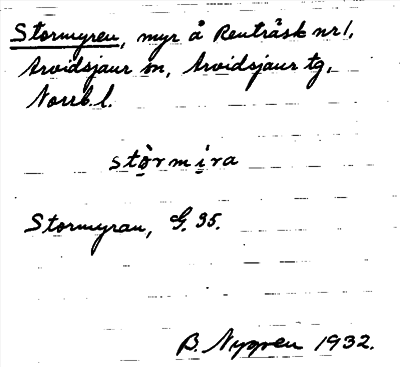 Stormyren, myr å Renträsk nr 1,
Arvidsjaur sn, Arvidsjaur tg,
Norrb l.
stòrmira
Stormyran, G. 95.
B. Nygren 1932.